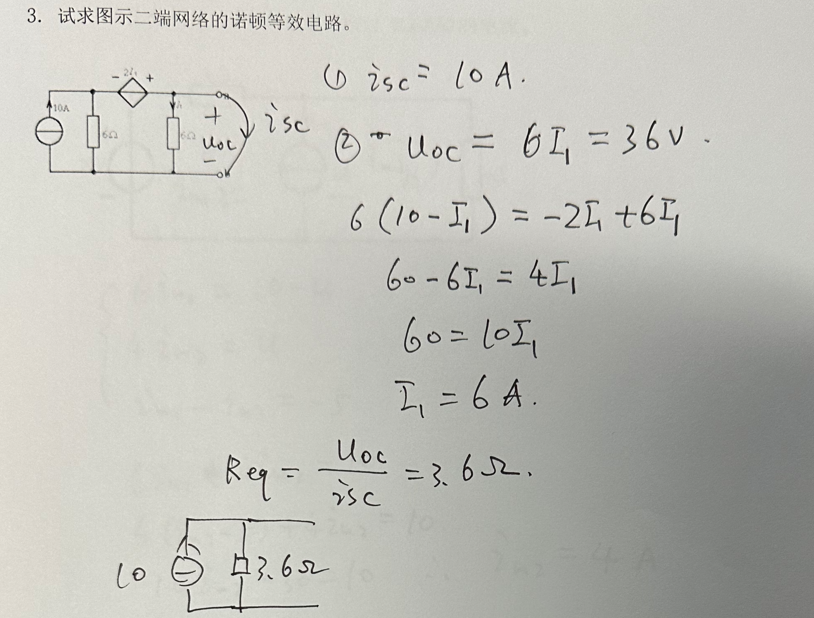 3. 试求图示二端网络的诺顿等效电路。
① isc = 10 A.
- 2i₁ +
10A
6Ω
6Ω
+
uoc
-
isc
② uoc = 6I₁ = 36V.
6(10-I₁) = -2I₁+6I₁
60-6I₁ = 4I₁
60 = 10I₁
I₁ = 6 A.
Req = uoc/isc = 3.6Ω.
10
3.6Ω